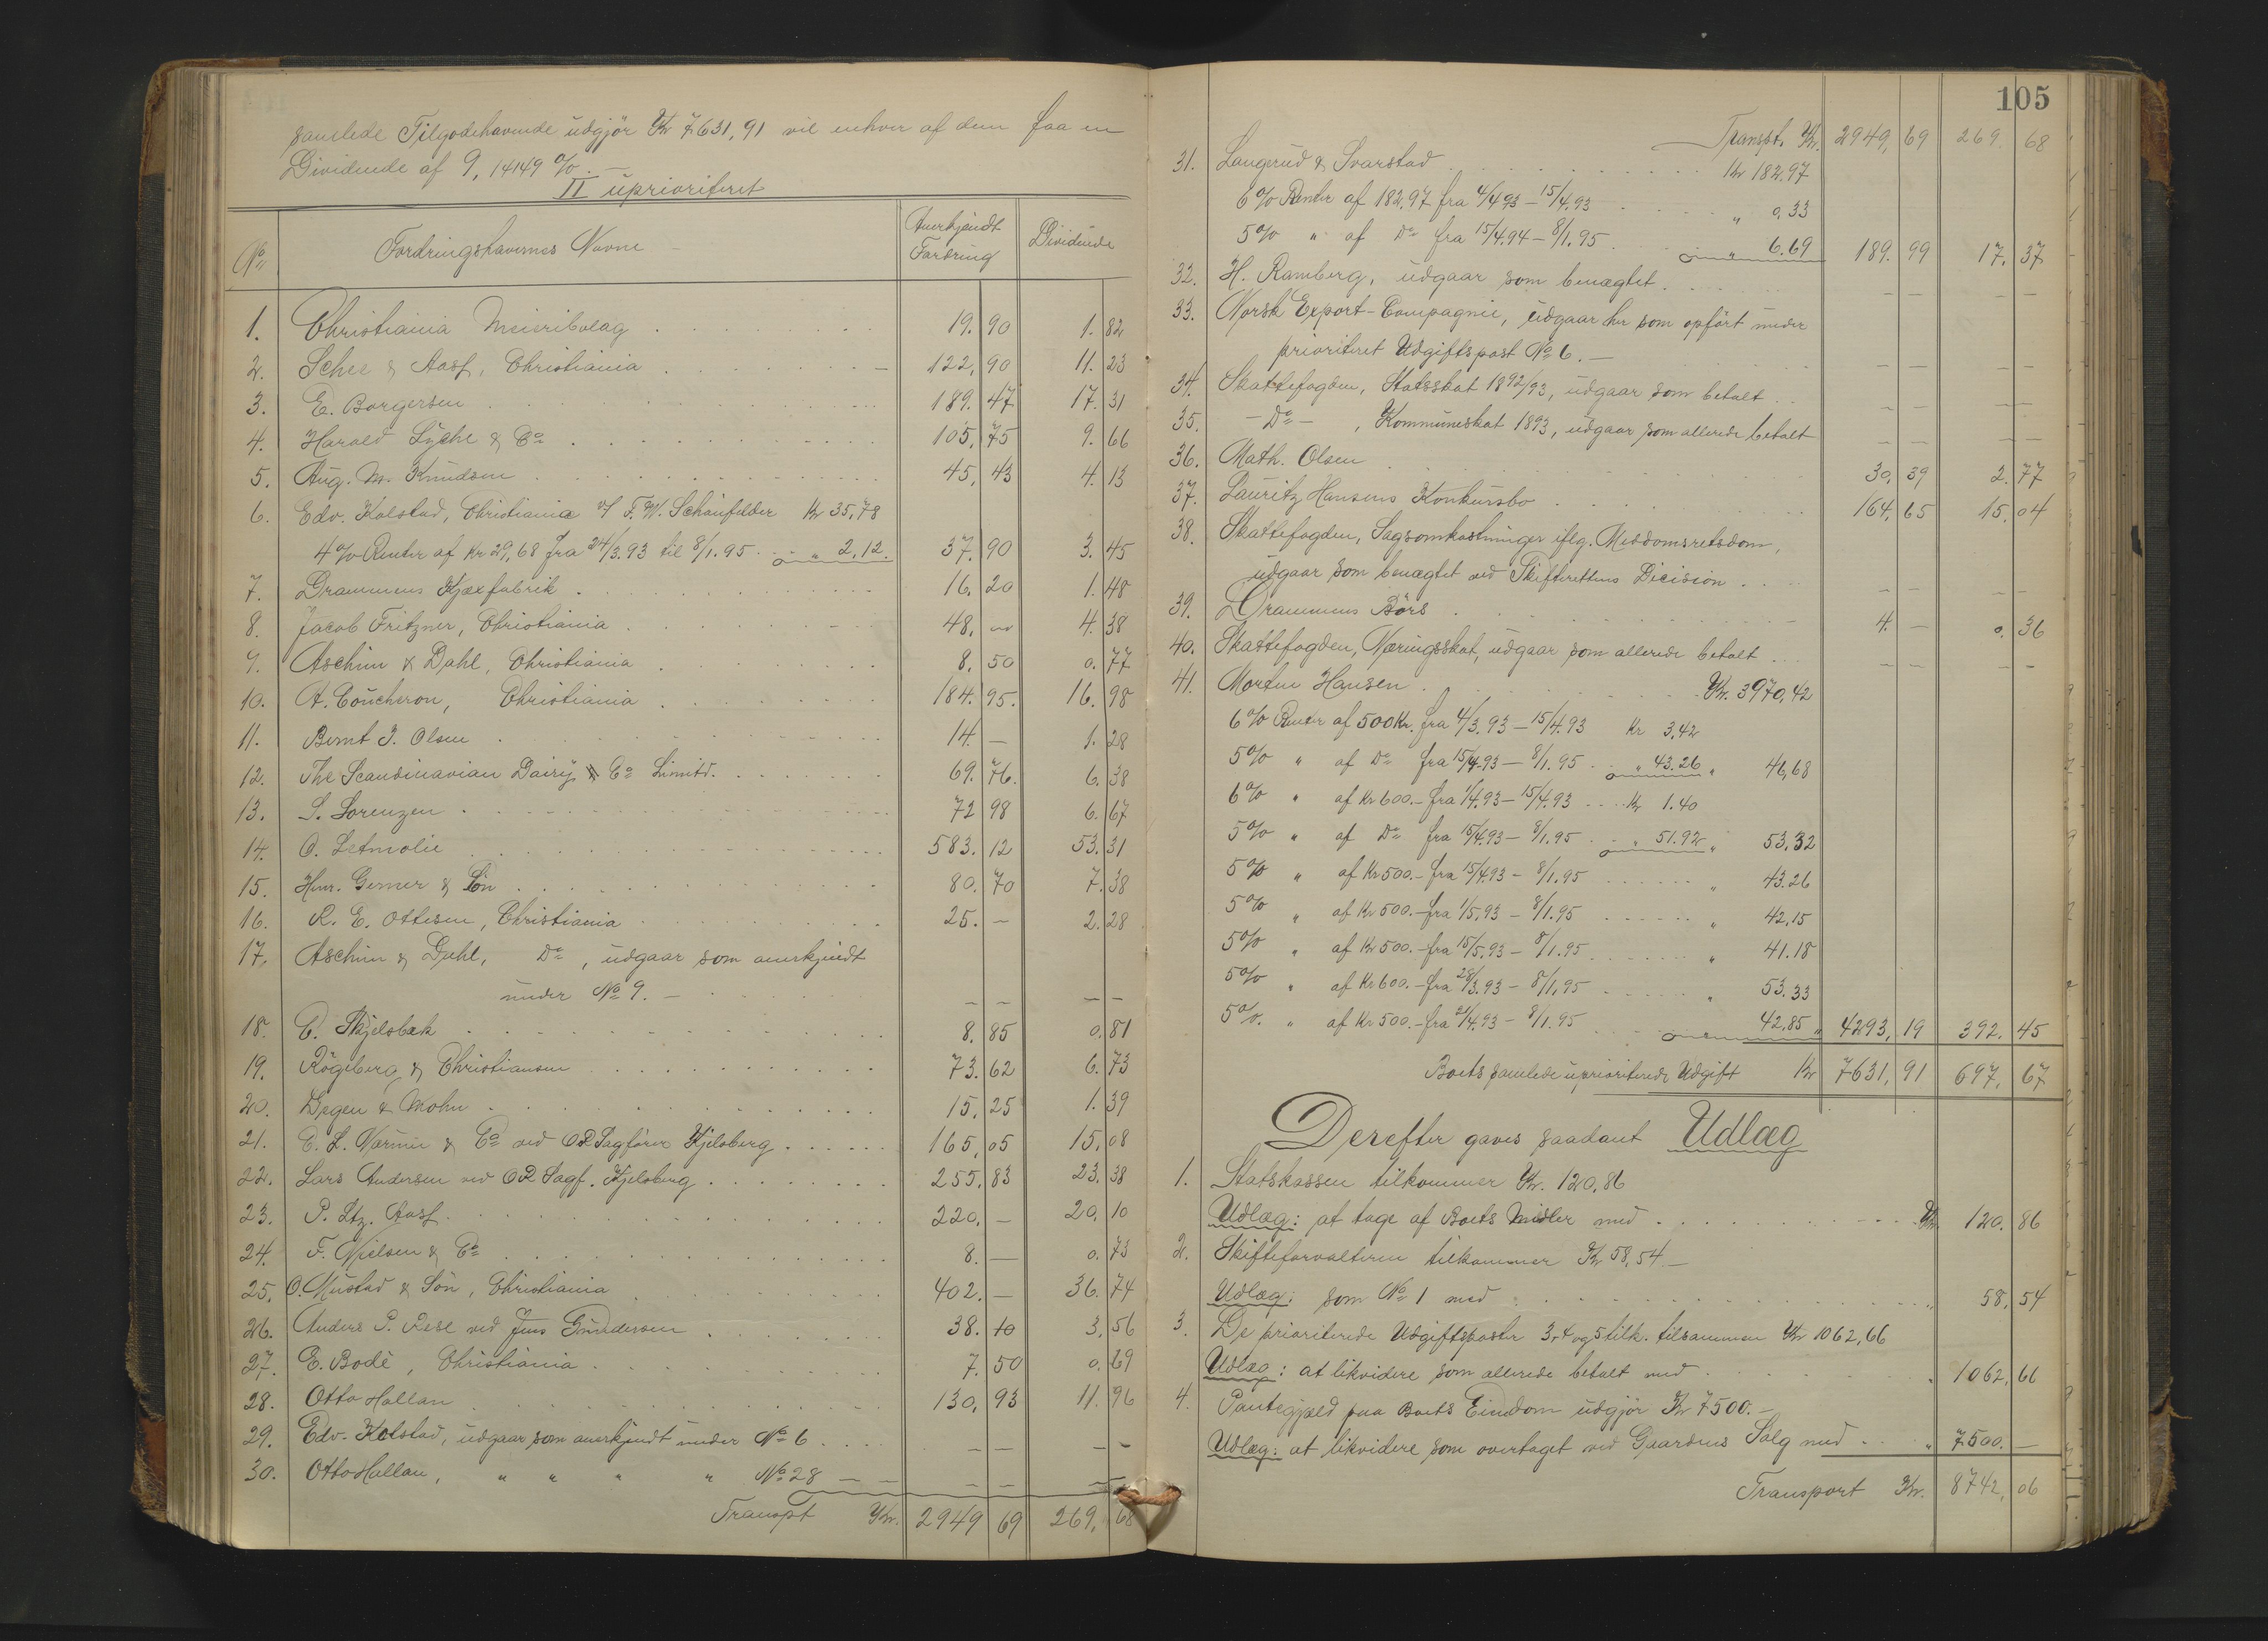 samlede Tilgodehavende udgjör Kr 7631,91 vil enhver af dem faa en
Dividende af 9,14149 %. —
II uprioriteret
No Fordringshavernes Navne — Anerkjendt Fordring Dividende
1. Christiania Meieribolag 19. 90 1. 82
2. Schee & Aass, Christiania 122, 90 11. 23
3. E. Borgersen 189. 47 17. 31
4. Harald Lyche & Co 105, 75 9. 66
5. Aug. M. Knudsen 45, 43 4. 13
6. Edv. Kolstad, Christiania v/ F. W. Schaufelder Kr 35,78
4% Renter af Kr 29,68 fra 24/3.93 til 8/1.95 „ 2,12. 37. 90 3. 45
7. Drammens Kjæxfabrik 16. 20 1. 48
8. Jacob Fritzner, Christiania 48, — 4. 38
9. Aschim & Dahl, Christiania 8. 50 0. 77
10. A. Coucheron, Christiania 184. 95. 16. 98
11. Bernt J. Olsen 14. — 1. 28
12. The Scandinavian Dairy Co Limitd. 69. 76. 6. 38
13. S. Lorenzen 72 98 6. 67
14. O. Letmolie 583. 12 53. 31
15. Henr. Gerner & Sön 80. 70 7. 38
16. R. E. Ottesen, Christiania 25. — 2. 28
17. Aschim & Dahl, Do, udgaar som anerkjendt
under No 9. — — — — —
18. C. Skjelsbæk 8. 85 0. 81
19. Rögeberg & Christiansen 73. 62 6. 73
20. Degen & Mohn 15, 25 1. 39
21. E. L. Værnie & Co ved O.R. Sagförer Kjelsberg 165, 05 15, 08
22. Lars Andersen ved O.R. Sagf. Kjelsberg 255, 83 23. 38
23. P. Ltz. Aass 220, — 20, 10
24. F. Nielsen & Co 8. — 0. 73
25. O. Mustad & Sön, Christiania 402. — 36. 74
26. Anders P. Rese ved Jens Gundersen 38. 10 3, 56
27. E. Bodé, Christiania 7. 50 0. 69
28. Otto Hallan 130, 93 11. 96
29. Edv. Kolstad, udgaar som anerkjendt under No 6 — — — —
30. Otto Hallan, „ „ „ „ No 28 — — — — — —
Transpt Kr. 2949 69 269, 68
105
Transpt. Kr. 2949, 69 269. 68
31. Langerud & Svarstad Kr 182.97
6% Renter af 182.97 fra 4/4 93 – 15/4.93 „ 0,33
5% „ af Do fra 15/4.94 – 8/1.95 „ 6.69 189. 99 17. 37
32. H. Ramberg, udgaar som benægtet — — — —
33. Norsk Export-Compagnie, udgaar her som opfört under
prioriteret Udgiftspost No 6. — — — — —
34. Skattefogden, Statsskat 1892/93, udgaar som betalt — — — —
35. — Do —, Kommuneskat 1893, udgaar som allerede betalt — — — —
36. Math. Olsen 30, 39 2. 77
37. Lauritz Hansens Konkursbo 164, 65 15, 04
38. Skattefogden, Sagsomkostninger iflg. Meddomsretsdom,
udgaar som benægtet ved Skifterettens Dicision — — — —
39. Drammens Börs 4. — 0. 36
40. Skattefogden, Næringsskat, udgaar som allerede betalt — — — —
41. Morten Hansen Kr. 3970,42
6% Renter af 500 Kr. fra 4/3.93 – 15/4.93 Kr 3,42
5% „ af Do fra 15/4.93 – 8/1.95 „ 43.26 „ 46,68
6% „ af Kr 600.– fra 1/4.93 – 15/4.93 Kr 1.40
5% „ af Do fra 15/4.93 – 8/1.95 „ 51.92 „ 53,32
5% „ af Kr 500.– fra 15/4.93 – 8/1.95 „ 43.26
5% „ af Kr 500.– fra 1/5.93 – 8/1.95 „ 42,15
5% „ af Kr 500.– fra 15/5.93 – 8/1.95 „ 41.18
5% „ af Kr 600.– fra 28/3.93 – 8/1.95 „ 53.33
5%. „ af Kr 500.– fra 21/4.93 – 8/1.95 42,85 „ 4293, 19 392. 45
Boets samlede uprioriterede Udgift Kr 7631, 91 697, 67
Derefter gaves saadant Udlæg
1. Statskassen tilkommer Kr. 120,86
Udlæg: at tage af Boets Midler med Kr. 120. 86
2. Skifteforvalteren tilkommer Kr 58,54 —
Udlæg: som No 1 med „ 58, 54
3. De prioriterede Udgiftsposter 3, 4 og 5 tilk. tilsammen Kr 1062,66
Udlæg: at likvidere som allerede betalt med „ 1062, 66
4. Pantegjæld paa Boets Eiendom udgjör Kr 7500.–
Udlæg: at likvidere som overtaget ved Gaardens Salg med „ 7500. —
Transport Kr. 8742, 06